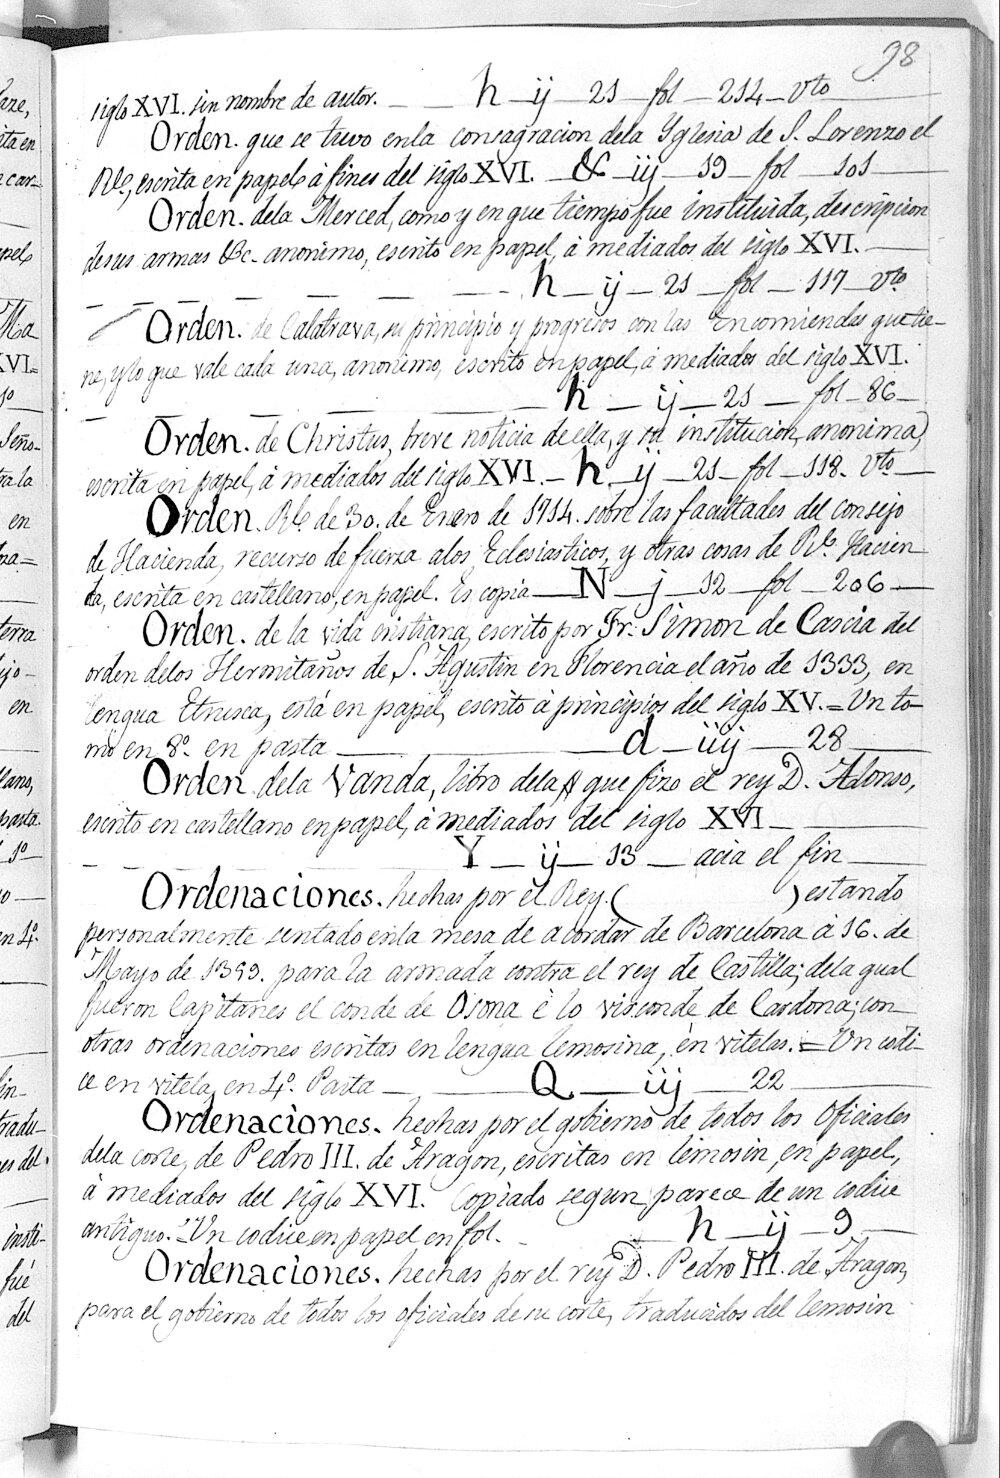 98
siglo XVI. sin nombre de autor. — — h — ij — 21 — fol — 214 — vto
Orden. que se tuvo enla consagracion dela Yglesia de S. Lorenzo el
Rl, escrita en papel à fines del siglo XVI. — & — ij — 19 — fol — 101 —
Orden. dela Merced, como y en que tiempo fue instituida, descripcion
desus armas &c. anonimo, escrito en papel, à mediados del siglo XVI. —
— — — — — — — h — ij — 21 — fol — 117 — vto
Orden. de Calatrava, su principio y progresos con las Encomiendas que tie-
ne, y lo que vale cada una, anonimo, escrito en papel, à mediados del siglo XVI.
— — — h — ij — 21 — fol — 86 —
Orden. de Christus, breve noticia de ella, y su institucion, anonima,
escrita en papel, à mediados del siglo XVI. — h — ij — 21 — fol — 118. vto —
Orden. Rl. de 30. de Enero de 1714. sobre las facultades del consejo
de Hacienda, recurso de fuerza alos Eclesiasticos, y otras cosas de Rl. Hacien
da, escrita en castellano, en papel. Es copia — N — j — 12 — fol — 206 —
Orden. de la vida cristiana, escrito por Fr. Simon de Cascia del
orden delos Hermitaños de S. Agustin en Florencia el año de 1333, en
lengua Etrusca, está en papel, escrito à principios del siglo XV. = Un to-
mo en 8º. en pasta — — d — iij — 28 —
Orden dela Vanda, libro dela que fizo el rey D. Alonso,
escrito en castellano en papel, à mediados del siglo XVI —
— — — Y — ij — 13 — acia el fin —
Ordenaciones. hechas por el Rey ( ) estando
personalmente sentado enla mesa de acordar de Barcelona à 16. de
Mayo de 1359. para la armada contra el rey de Castilla; dela qual
fueron Capitanes el conde de Osona è lo visconde de Cardona; con
otras ordenaciones escritas en lengua lemosina, en vitelas. = Un codi-
ce en vitela, en 4º. Pasta — — Q — iij — 22 —
Ordenaciones. hechas por el gobierno de todos los Oficiales
dela corte, de Pedro III. de Aragon, escritas en lemosin, en papel,
à mediados del siglo XVI. Copiado segun parece de un codice
antiguo. = Un codice en papel en fol. — h — ij — 9 —
Ordenaciones. hechas por el rey D. Pedro III. de Aragon,
para el gobierno de todos los oficiales de su corte, traducidos del lemosin